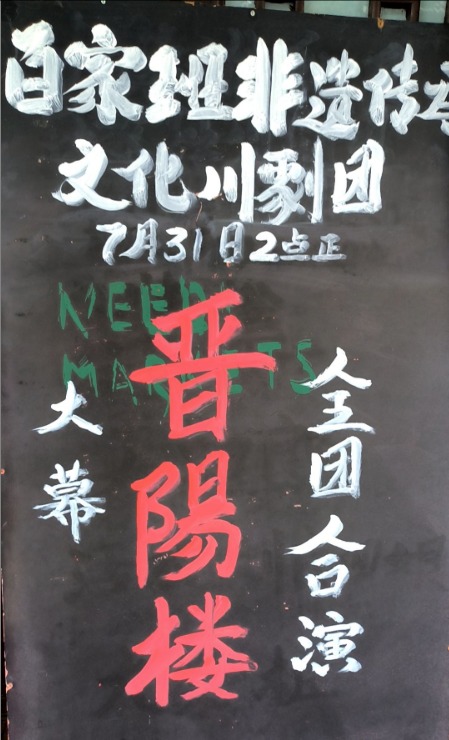 百家班非遗传承
文化川剧团
7月31日2点正
NEED
MARKETS
晋陽楼
大幕
全团合演